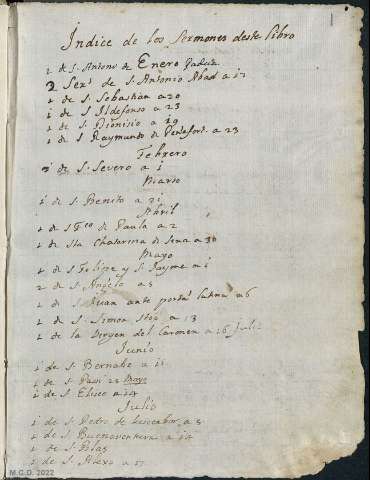 Indice de los Sermones deste libro
1 de S. Antono de Enero
2 Ser.s de S. Antonio Abad a 17
1 de S. Sebastian a 20
1 de S. Ildefonso a 23
1 de S. Dionisio a 29
1 de S. Raymundo de Peñafort. a 23
Febrero
1 de S. Severo a 1
Marso
1 de S. Benito a 21
Abril
1 de S Fco de Paula a 2
1 de Sta Chatarina de Sena a 30
Mayo
1 de S Felipe y S. Jayme a 1
2 de S. Angelo a 5
1 de S. Juan ante portā latina a 6
1 de S. Simon Stoc a 13
1 de la Virgen del Carmen a 16 Julio
Junio
1 de S. Bernabe a 11
1 de S. 25 Mayo
1 de S. Eliseo a 14
Julio
1 de S. Pedro de a 5
1 de S. Buenaventura a 14
1 de S. Blas
1 de S. Alexo a 17
M.C.D. 2022